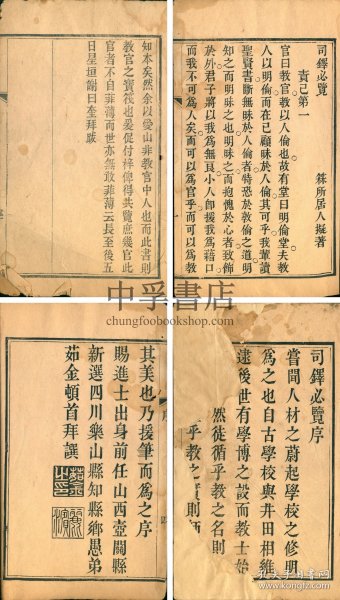 司鐸必覽
責己第一
銖所居人擬著
官曰教官教以人倫也故有堂曰明倫堂夫教
人以明倫而在己顧昧於人倫其可乎我輩讀
聖賢書斷無昧於人倫者特恐於教倫之道明
知之而明昧之也明昧之而抱愧於心者致餙
於外君子將以我爲無良小人卽援我爲藉口
而我不可爲人矣而可以爲官乎而可以爲教
知本矣然余以爰山非教官中人也而此書則
教官之寶筏也爰促付梓俾得共覽庶幾官此
官者不自菲薄而世亦無敢菲薄云長至後五
日星垣謝曰奎拜跋
中孚書店
chungfoobookshop.com
司鐸必覽序
嘗聞人材之蔚起學校之修明
爲之也自古學校與井田相維
逮後世有學博之設而教士始
然徒循乎教之名則
乎教之實則
其美也乃援筆而爲之序
賜進士出身前任山西壺關縣
新選四川樂山縣知縣鄉愚弟
茹金頓首拜譔
孔夫子旧书网